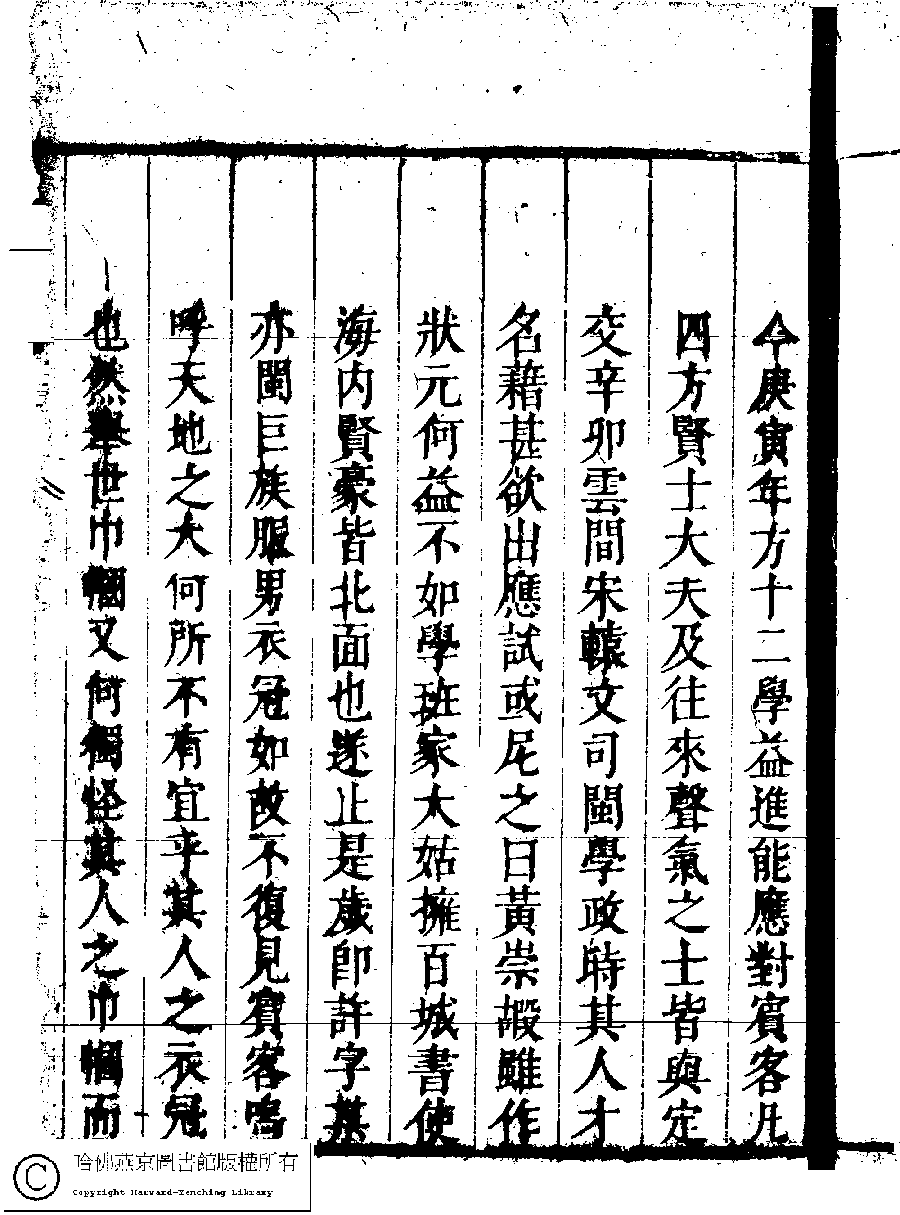 今庚寅年方十二學益進能應對賓客凡
四方賢士大夫及往來聲氣之士皆與定
交辛卯雲間宋轅文司閩學政時其人才
名藉甚欲出應試或尼之曰黃崇嘏雖作
狀元何益不如學班家大姑擁百城書使
海内賢豪皆北面也遂止是歲即許字某
亦閩巨族服男衣冠如故不復見賓客嗚
呼天地之大何所不有宜乎其人之衣冠
也然舉世巾幗又何獨怪其人之巾幗而
哈佛燕京圖書館版權所有
Copyright Harvard-Yenching Library